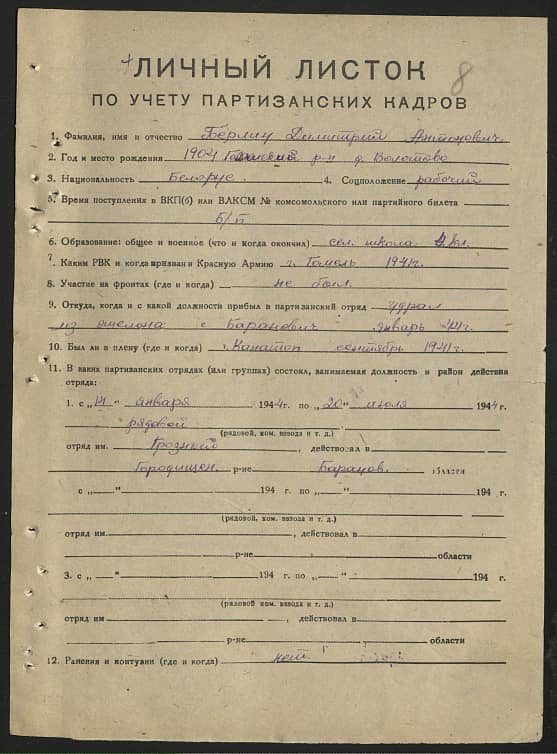 ЛИЧНЫЙ ЛИСТОК 8
ПО УЧЕТУ ПАРТИЗАНСКИХ КАДРОВ
1. Фамилия, имя и отчество Димитрий Антонович
2. Год и место рождения 1904 р-н д. Волотово
3. Национальность Белорус. 4. Соцположение рабочий
5. Время поступления в ВКП(б) или ВЛКСМ № комсомольского или партийного билета
Б/п
6. Образование: общее и военное (что и когда окончил) сел. школа
7. Каким РВК и когда призван в Красную Армию г. Гомель 1941г.
8. Участие на фронтах (где и когда) не был.
9. Откуда, когда и с какой должности прибыл в партизанский отряд удрал
из эшелона с Баранович январь 44г.
10. Был ли в плену (где и когда) г. Канатоп сентябрь 1941г.
11. В каких партизанских отрядах (или группах) состоял, занимаемая должность и район действия
отряда:
1. с „14 января 1944г. по „20" июля 1944 г.
рядовой
(рядовой, ком. взвода и т. д.)
отряд им. Грозный, действовал в
Городищен. р-не Баранов. области
с „ “ 194 г. по „ “ 194 г.
(рядовой, ком. взвода и т. д.)
отряд им. , действовал в
р-не области
3. с „ “ 194 г. по „ “ 194 г.
(рядовой ком. взвода и т. д.)
отряд им , действовал в
р-не области
12. Ранения и контузии (где и когда) нет